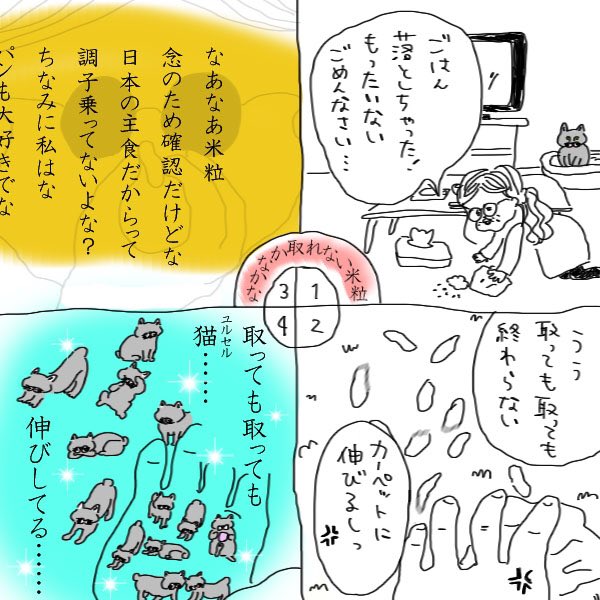 なかなか取れない米粒
1
2
3
4
ごはん
落としちゃった!
もったいない
ごめんなさい…
うう
取っても取っても
終わらない
カーペットに
伸びるしっ
なあなあ米粒
念のため確認だけどな
日本の主食だからって
調子乗ってないよな?
ちなみに私はな
パンも大好きでな
取っても取っても
猫……
ユルセル
伸びしてる……